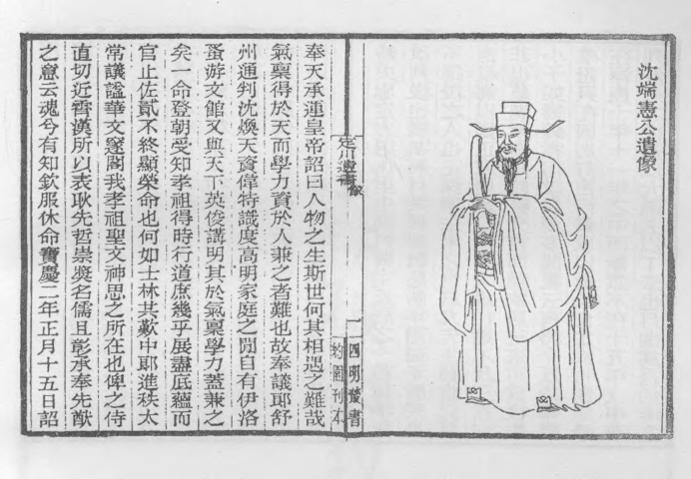 沈端憲公遺像
定川遺書
像
四明叢書
約園刊本
奉天承運皇帝詔曰人物之生斯世何其相遇之難哉
氣稟得於天而學力資於人兼之者難也故奉議郎舒
州通判沈煥天資偉特識度高明家庭之閒自有伊洛
蚤游文館又與天下英俊講明其於氣稟學力蓋兼之
矣一命登朝受知孝祖得時行道庶幾乎展盡底蘊而
官止佐貳不終顯榮命也何如士林共歎中耶進秩太
常議謚華文邃閣我孝祖聖文神思之所在也俾之侍
直切近霄漢所以表耿先哲崇奬名儒且彰承奉先猷
之意云魂兮有知欽服休命寶慶二年正月十五日詔